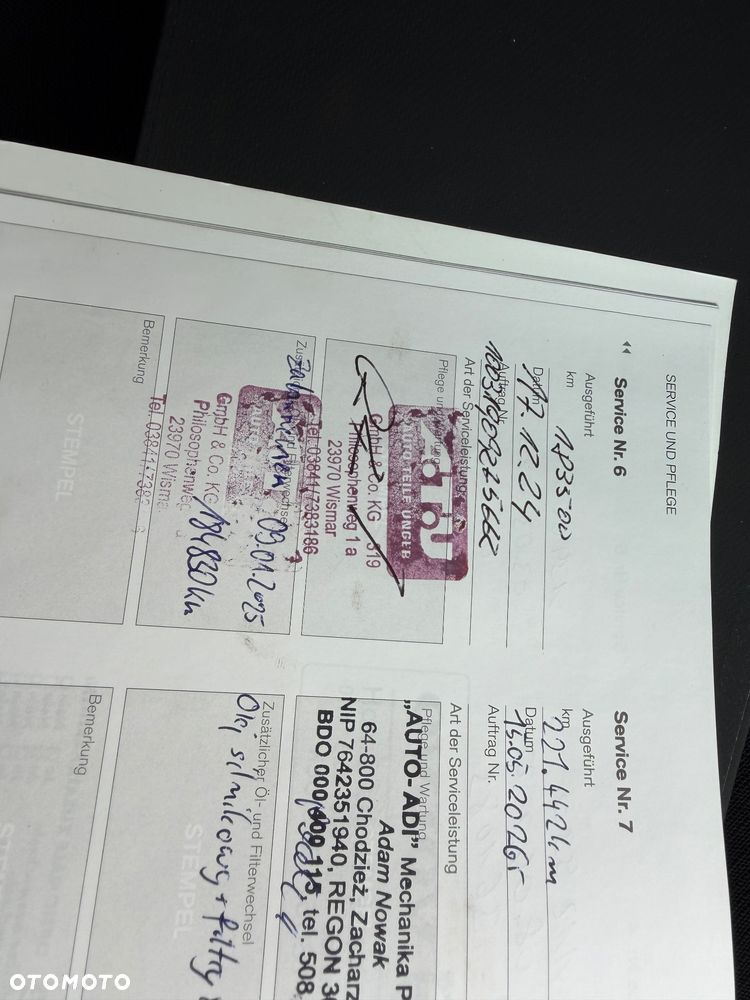 SERVICE UND PFLEGE
Service Nr. 6
Ausgeführt
km 183500
Datum 17.12.24
Auftrag Nr.
Art der Serviceleistung
Pflege und Wartung
ad
AUTOTEILE UNGER
GmbH & Co. KG 819
Philosophenweg 1 a
23970 Wismar
Tel. 03841/7383186
Zahnriemen 09.01.2025
184830 km
GmbH & Co. KG
Philosophenweg
23970 Wismar
Tel. 03841/7383
Bemerkung
STEMPEL
Service Nr. 7
Ausgeführt
km 221.442km
Datum 15.05.2026r
Auftrag Nr.
Art der Serviceleistung
Pflege und Wartung
„AUTO-ADI” Mechanika P
Adam Nowak
64-800 Chodzież, Zacharz
NIP 7642351940, REGON 30
BDO 000 009 115, tel. 508
Zusätzlicher Öl- und Filterwechsel
Olej silnikowy + filtry
STEMPEL
Bemerkung
STEMPEL
OTOMOTO